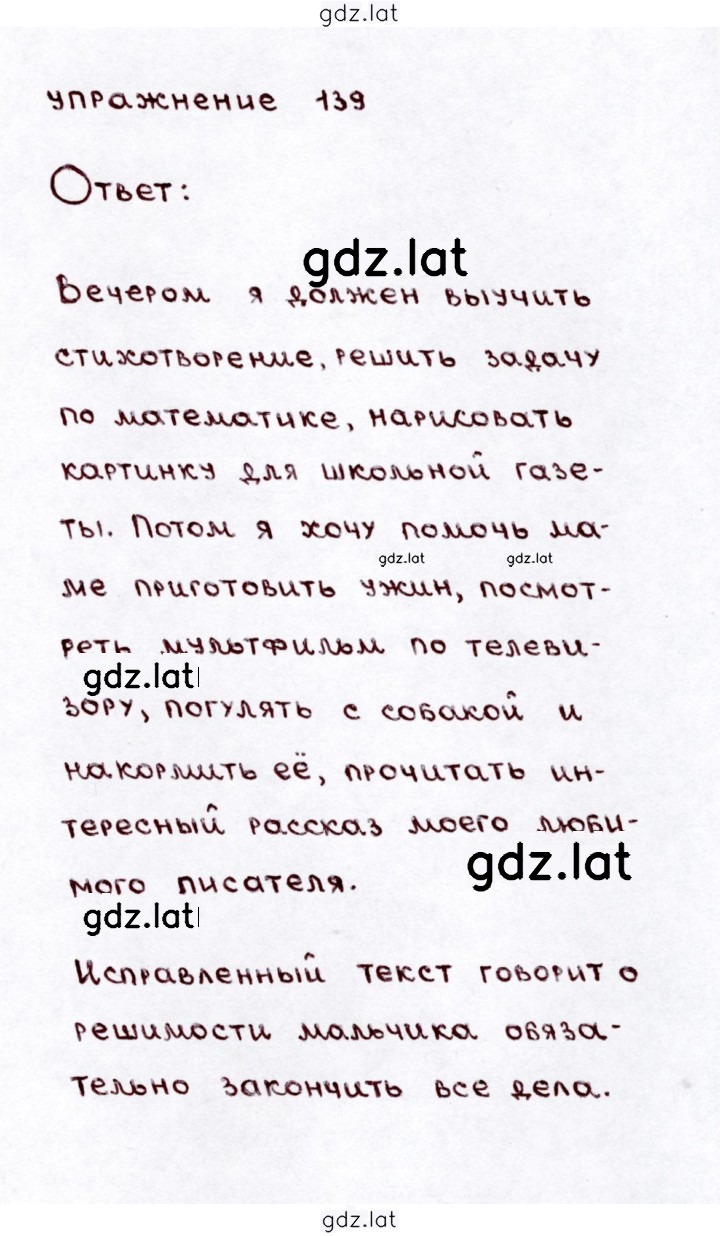 gdz.lat
упражнение 139
Ответ:
gdz.lat
Вечером я должен выучить
стихотворение, решить задачу
по математике, нарисовать
картинку для школьной газе-
ты. Потом я хочу помочь ма-
gdz.lat gdz.lat
ме приготовить ужин, посмот-
реть мультфильм по телеви-
gdz.lat
зору, погулять с собакой и
накормить её, прочитать ин-
тересный рассказ моего люби-
gdz.lat
мого писателя.
gdz.lat
Исправленный текст говорит о
решимости мальчика обяза-
тельно закончить все дела.
gdz.lat